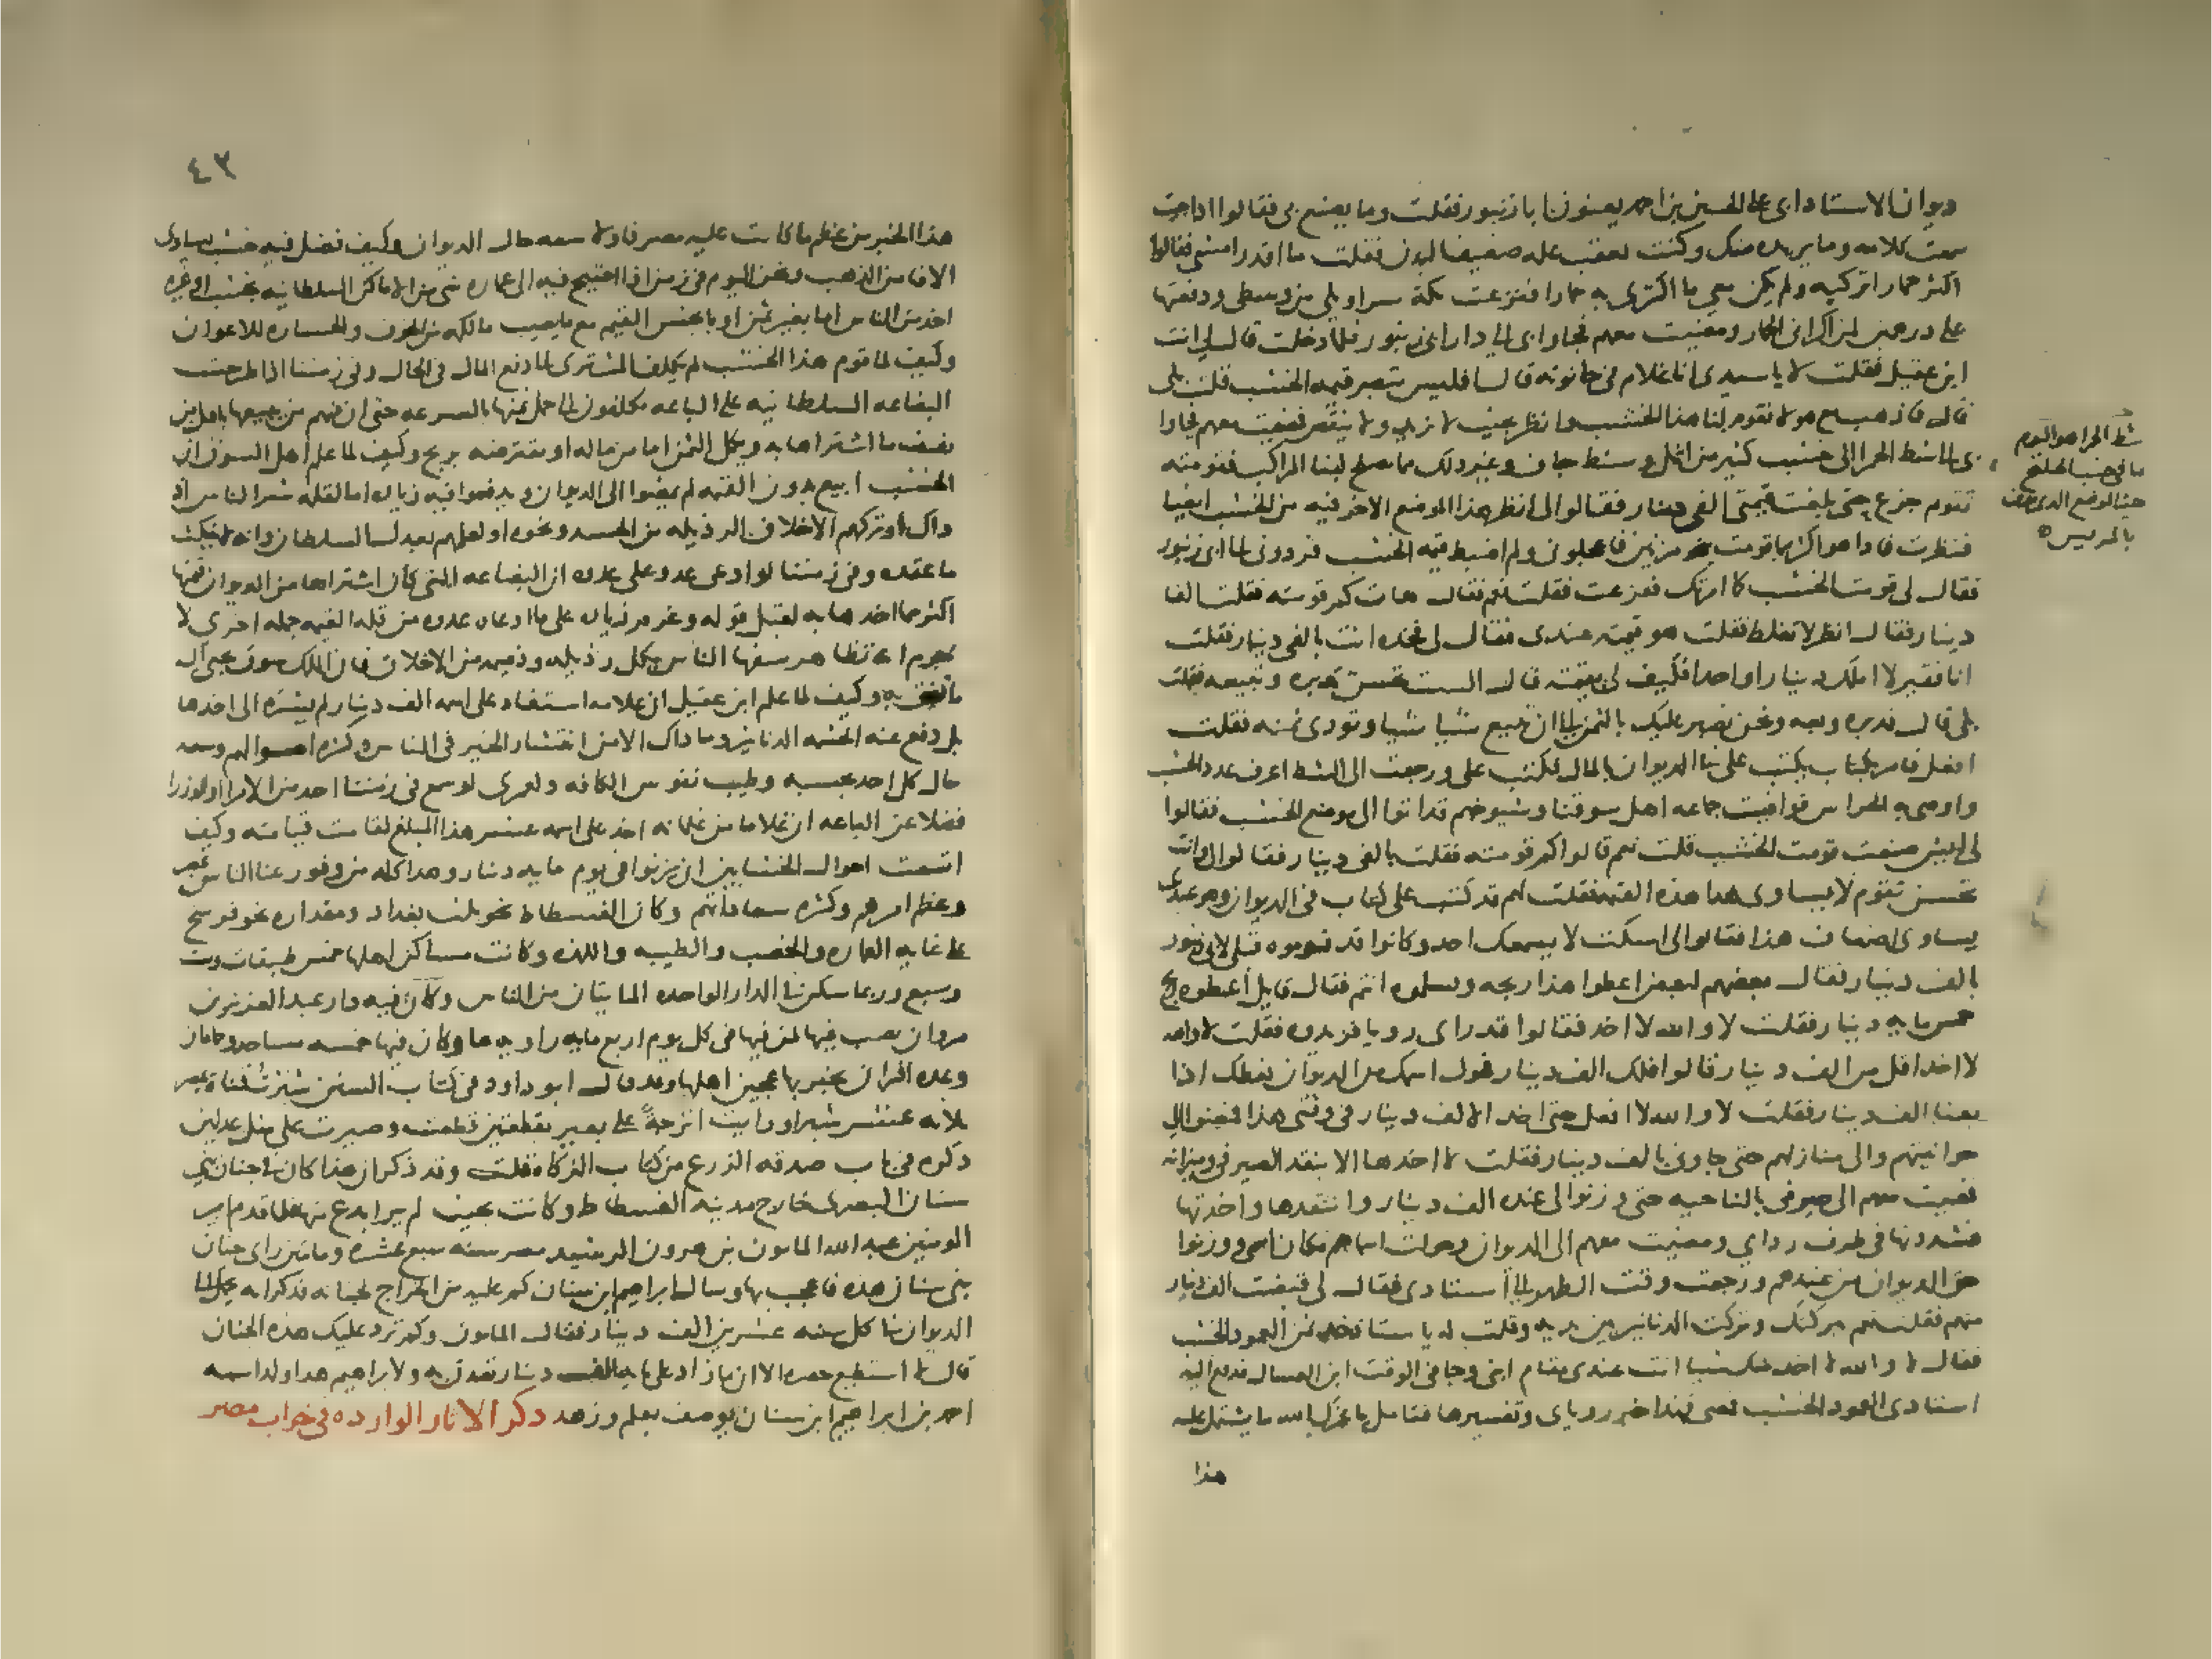 ديوان الاستاد ابى على الحسين بن احمد يعنون ابا زنبور فقلت وما يصنع بى فقالوا اذا جيت
سمعت كلامه وما يريده منك وكنت بعقب عله ضعيف البدن فقلت ما اقدر امشى فقالوا
اكتر حمارا تركبه ولم يكن معى ما اكترى به حمارا فنزعت تكة سراويلى من وسطى ودفعتها
على درهمين لمن اكرانى الحمار ومضيت معهم فجاوا بى الى دار ابى زنبور فلما دخلت قال لى انت
ابن عقيل فقلت لا يا سيدى انا غلام فى حانوته قال افليس تبصر قيمه الخشب قلت بلى
قال فاذهب مع هولا فقوم لنا هذا الخشب وانظر بحيث لا يزيد ولا ينقص فمضيت معهم فجاوا
بى الى الشط الحمرا الى خشب كثير من اثل وسنط جاف وغير ذلك مما يصلح لبنا المراكب فقومته
تقويم جزع حتى بلغت قيمته الفى دينار فقالوا لى انظر هذا الموضع الاخر فيه من الخشب ايضا
فنظرت فاذا هو اكثر مما قومت بنحو مرتين فاعجلونى ولم اضبط قيمه الخشب فردونى الى ابى زنبور
فقال لى قومت الخشب كما امرتك ففزعت فقلت نعم فقال هات كم قومته فقلت الفا
دينار فقال انظر لا تغلط فقلت هو قيمته عندى فقال لى فخذه انت بالفى دينار فقلت
انا فقير لا املك دينارا واحدا فكيف لى بقيمته قال الست تحسن تدبره وتبيعه فقلت
بلى قال فدبره وبعه ونحن نصبر عليك بالثمن الى ان تبيع شيا شيا وتودى ثمنه فقلت
افعل فامر بكتاب يكتب على فى الديوان بالمال فكتب على ورجعت الى الشط اعرف عدد الخشب
واوصى به الحراس فوافيت جماعه اهل سوقنا وشيوخهم قد اتوا الى موضع الخشب فقالوا
لى ايش صنعت قومت الخشب قلت نعم قالوا بكم قومته فقلت بالفى دينار فقالوا لى وانت
تحسن تقوم لا يساوى هذا هذه القيمه فقلت لهم قد كتب على كتاب فى الديوان وهو عندى
يساوى اضعاف هذا فقالوا لى اسكت لا يسمعك احد وكانوا قد قوموه قبلى لابى زنبور
بالف دينار فقال بعضهم لبعض اعطوا هذا ربحه وتسلموه انتم فقال قايل اعطوه ربح
خمس مايه دينار فقلت لا والله لا اخد فقالوا قد راى رويا فزيدوه فقلت لا والله
لا اخد اقل من الف دينار قالوا فلك الف دينار فحول اسمك من الديوان نعطك اذا
بعنا الف دينار فقلت لا والله لا افعل حتى اخد الالف دينار فى وقتى هذا فمضوا الى
حوانيتهم والى منازلهم حتى جاونى بالف دينار فقلت لا اخدها الا بنقد الصيرفى وميزانه
فمضيت معهم الى صيرفى بالناحيه حتى وزنوا لى عنده الف دينار وانتقدها واخدتها
فشددتها فى طرف رداي ومضيت معهم الى الديوان وحولت اسماهم مكان اسمى ووزنوا
حق الديوان من عندهم ورجعت وقت الظهر الى استادى فقال لى قبضت الف دينار
منهم فقلت نعم ببركتك وتركت الدنانير بين يديه وقلت له يا استاد خد ثمن العمود الخشب
فقال لا والله لا اخد منك شيا انت عندى مقام ابنى وجا فى الوقت ابن العسال فدفع اليه
استادى العمود الخشب فمضى فهذا خبر روياى وتفسيرها فتامل يا عزك الله ما يشتمل عليه
هذا
شط الحمرا هو اليوم
ما فى جنب الخليج
حيث الموضع الذى يعرف
بالمريس
٤٣
هذا الخبر من عظم ما كانت عليه مصر فاولا سعه حال الديوان وكيف فضل فيه خشب يساوى
الافا من الذهب ونحن اليوم فى زمن اذا احتيج فيه الى عماره شى من الاماكن السلطانيه بخشب او غيره
اخد من الناس اما بغير ثمن او بابخس القيم مع ما يصيب مالكه من الخوف والخساره للاعوان
وكيف لما قوم هذا الخشب لم يكلف المشترى الى دفع المال فى الحال وفى زمننا اذا طرحت
البضاعه السلطانيه على الباعه مكلفون الى حمل ثمنها بالسرعه حتى ان فيهم من يبيعها باقل من
نصف ما اشتراها به ويكمل الثمن اما من ماله او يقترضه بربح وكيف لما علم اهل السوق ان
الخشب ابيع بدون القيمه لم يمضوا الى الديوان ويدفعوا فيه زياده اما لقله شره الناس اذ
داك او تركهم الاخلاق الرذيله من الحسد ونحوه او لعلمهم بعدل السلطان وانه لا ينكث
ما عقده وفى زمننا لو ادعى عدو على عدوه ان البضاعه التى كان اشتراها من الديوان قيمتها
اكثر مما اخدها به لقبل قوله وغرم زياده على ما ادعاه عدوه من قله القيمه جمله اخرى لا
جرم انه تظاهر سفها الناس بكل رذيله وذميمه من الاخلاق فان الملك سوق يجبى اليه
ما نفق به وكيف لما علم ابن عقيل ان غلامه استفاد على اسمه الف دينار لم يشره الى اخدها
بل دفع عنه الخشبه الدنانير وما داك الا من انتشار الخير فى الناس وكثره اموالهم وسعه
حال كل احد بحسبه وطيب نفوس الكافه ولعمرى لو سمع فى زمننا احد من الامرا او الوزرا
فضلا عن الباعه ان غلاما من غلمانه اخد على اسمه عشر هذا المبلغ لقامت قيامته وكيف
اتسعت احوال الخشابين ان يزنوا فى يوم مايه دينار وهدا كله من وفور غنا الناس بمصر
وعظم امرهم وكثره سعاداتهم وكان الفسطاط نحو ثلث بغداد ومقداره نحو فرسخ
على غايه العماره والخصب والطيبه واللذه وكانت مساكن اهلها خمس طبقات وست
وسبع وربما سكن فى الدار الواحده المايتان من الناس وكان فيه دار عبد العزيز بن
مروان يصب فيها لمن فيها فى كل يوم اربع مايه راويه ما وكان فيها خمسه مساجد وحمامان
وعده افران يخبز بها عجين اهلها وقد قال ابو داود فى كتاب السنن شبرت قثاة بمصر
ثلاثه عشر شبرا ورايت اترجةً على بعير بقطعتين قطعت وصيرت على مثل عدلين
ذكره فى باب صدقه الزرع من كتاب الزكاه فقلت وقد ذكر ان هذا كان فى جنان بنى
سنان البصرى خارج مدينه الفسطاط وكانت بحيث لم ير ابدع منها فلما قدم امير
المومنين عبد الله المامون بن هرون الرشيد مصر سنه سبع عشره ومايتين راى جنان
بنى سنان هذه فاعجب بها وسال ابراهيم ابن سنان كم عليه من الخراج لجنانه فذكر انه يحمل الى
الديوان فى كل سنه عشرين الف دينار فقال المامون وكم ترد عليك هذه الجنان
قال لا استطيع حصره الا ان ما زاد على مايه الف دينار تصدق به ولابراهيم هدا ولد اسمه
احمد بن ابراهيم ابن سنان يوصف بعلم وزهد ذكر الاثار الوارده فى خراب مصر